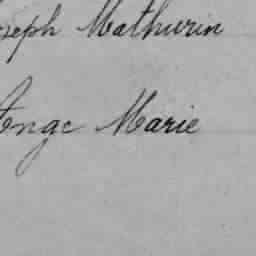 oseph Mathurin
Ange Marie